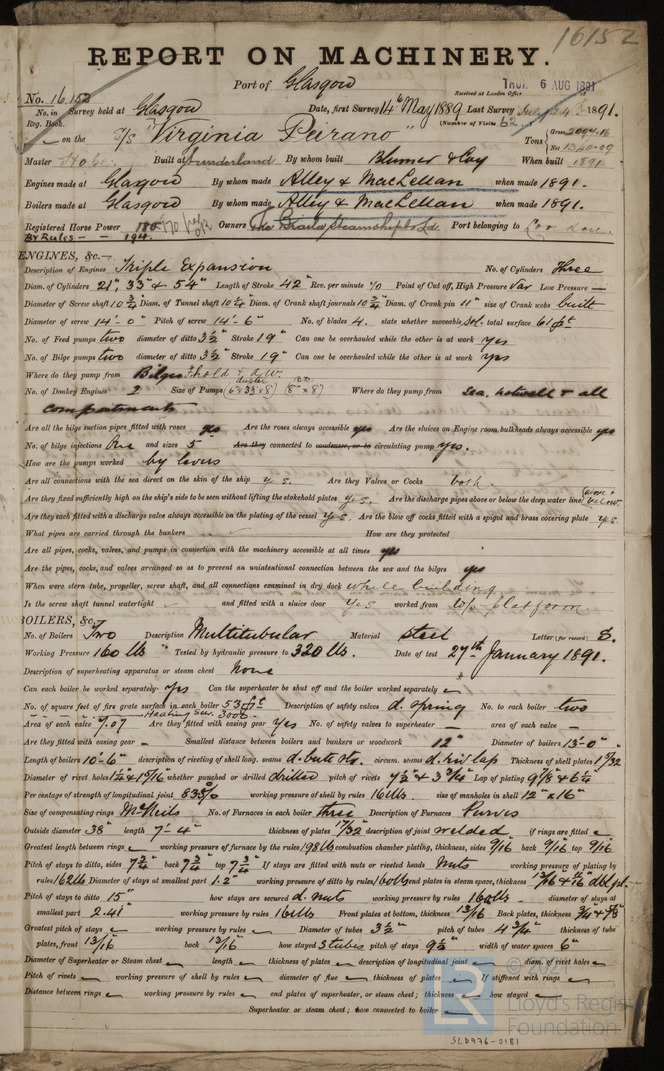 16152
REPORT ON MACHINERY.
Port of Glasgow
Received at London Office THUR. 6 AUG 1891
No. 16,152
No. in Survey held at Glasgow Date, first Survey 14th May 1889 Last Survey 1891.
Reg. Book. (Number of Visits 62
on the S/S "Virginia Peirano" Tons Gross 2004.16 Net
Master Built at Sunderland By whom built Blumer & Coy When built 1891
Engines made at Glasgow By whom made Alley & MacLellan when made 1891.
Boilers made at Glasgow By whom made Alley & MacLellan when made 1891.
Registered Horse Power Owners Port belonging to London
By Rules - - 194.
ENGINES, &c.—
Description of Engines Triple Expansion No. of Cylinders Three
Diam. of Cylinders 21", 33" & 54" Length of Stroke 42" Rev. per minute 70 Point of Cut off, High Pressure Var Low Pressure —
Diameter of Screw shaft 10 3/4 Diam. of Tunnel shaft 10 1/4 Diam. of Crank shaft journals 10 3/4 Diam. of Crank pin 11" size of Crank webs built
Diameter of screw 14'-0" Pitch of screw 14'-6" No. of blades 4. state whether moveable sol. total surface 61 ft
No. of Feed pumps two diameter of ditto 3 1/2 Stroke 19" Can one be overhauled while the other is at work yes
No. of Bilge pumps two diameter of ditto 3 1/2 Stroke 19" Can one be overhauled while the other is at work yes
Where do they pump from Bilges, hold & S.W.
No. of Donkey Engines 2 Size of Pumps (8" x 8") Where do they pump from Sea, hotwell & all
compartments
Are all the bilge suction pipes fitted with roses yes Are the roses always accessible yes Are the sluices on Engine room bulkheads always accessible yes
No. of bilge injections One and sizes 5" Are they connected to condenser, or to circulating pump yes.
How are the pumps worked by levers
Are all connections with the sea direct on the skin of the ship yes. Are they Valves or Cocks both.
Are they fixed sufficiently high on the ship's side to be seen without lifting the stokehold plates yes. Are the discharge pipes above or below the deep water line above & below.
Are they each fitted with a discharge valve always accessible on the plating of the vessel yes Are the blow off cocks fitted with a spigot and brass covering plate yes
What pipes are carried through the bunkers How are they protected
Are all pipes, cocks, valves, and pumps in connection with the machinery accessible at all times yes
Are the pipes, cocks, and valves arranged so as to prevent an unintentional connection between the sea and the bilges yes
When were stern tube, propeller, screw shaft, and all connections examined in dry dock while building
Is the screw shaft tunnel watertight and fitted with a sluice door yes worked from top platform.
BOILERS, &c.—
No. of Boilers Two Description Multitubular Material steel Letter (for record) S.
Working Pressure 160 lbs Tested by hydraulic pressure to 320 lbs. Date of test 27th January 1891.
Description of superheating apparatus or steam chest None
Can each boiler be worked separately yes Can the superheater be shut off and the boiler worked separately —
No. of square feet of fire grate surface in each boiler 53 ft Description of safety valves d. spring No. to each boiler two
Heating Sur. 3000.
Area of each valve 7.07 Are they fitted with easing gear yes No. of safety valves to superheater — area of each valve —
Are they fitted with easing gear — Smallest distance between boilers and bunkers or woodwork 12" Diameter of boilers 13'-0"
Length of boilers 10'-6" description of riveting of shell long. seams d. butt str. circum. seams d. riv lap Thickness of shell plates 1 5/32
Diameter of rivet holes whether punched or drilled drilled pitch of rivets 7 1/2 & 3 3/4 Lap of plating 9 7/8 & 6 1/4
Per centage of strength of longitudinal joint working pressure of shell by rules size of manholes in shell 12" x 16"
Size of compensating rings McNeils No. of Furnaces in each boiler three Description of Furnaces Purves
Outside diameter 38" length 7'-4" thickness of plates 17/32 description of joint welded if rings are fitted —
Greatest length between rings — working pressure of furnace by the rules 198 lbs combustion chamber plating, thickness, sides 9/16 back 9/16 top 9/16
Pitch of stays to ditto, sides 7 3/4 back 7 3/4 top 7 3/4 If stays are fitted with nuts or riveted heads Nuts working pressure of plating by
rules 162 lbs Diameter of stays at smallest part 1.2" working pressure of ditto by rules 160 lbs end plates in steam space, thickness
Pitch of stays to ditto 15" how stays are secured d. nuts working pressure by rules 160 lbs diameter of stays at
smallest part 2.41" working pressure by rules Front plates at bottom, thickness 13/16 Back plates, thickness 3/4 & 7/8
Greatest pitch of stays — working pressure by rules — Diameter of tubes 3 1/2 pitch of tubes 4 3/4" thickness of tube
plates, front 13/16 back 13/16 how stayed S tubes pitch of stays 9 1/2 width of water spaces 6"
Diameter of Superheater or Steam chest — length — thickness of plates — description of longitudinal joint — diam. of rivet holes —
Pitch of rivets — working pressure of shell by rules — diameter of flue — thickness of plates — If stiffened with rings —
Distance between rings — working pressure by rules — end plates of superheater, or steam chest; thickness — how stayed —
Superheater or steam chest; how connected to boiler —
© 2021
Lloyd's Register
Foundation
SLD976-0181